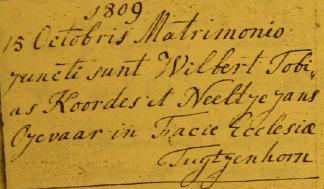 1809
15 Octobris Matrimonio
juncti sunt Wilbert Tobi„
as Koordes et Neeltje Jans
Oyevaar in Facie Ecclesiæ
Tugtzenhorn